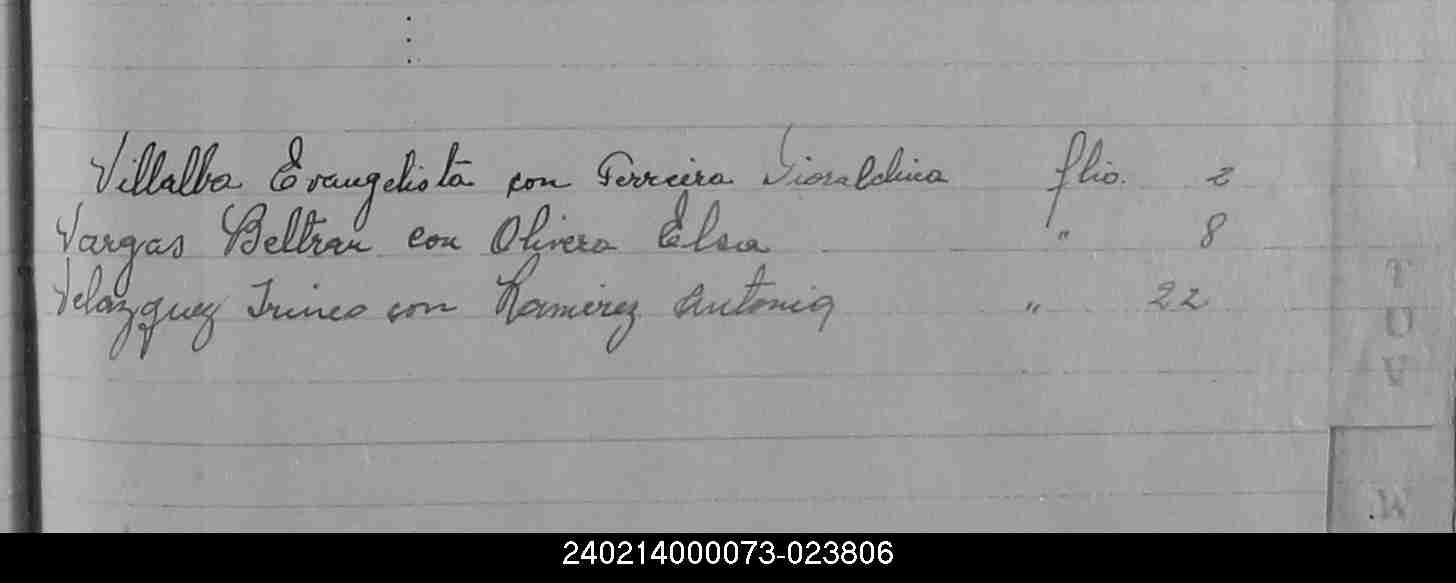 Villalba Evangelista con Ferreira flio. 2
Vargas Beltran con Olivera Elsa " 8
Velazquez con Ramirez Antonia " 22
T
U
V
W
240214000073-023806